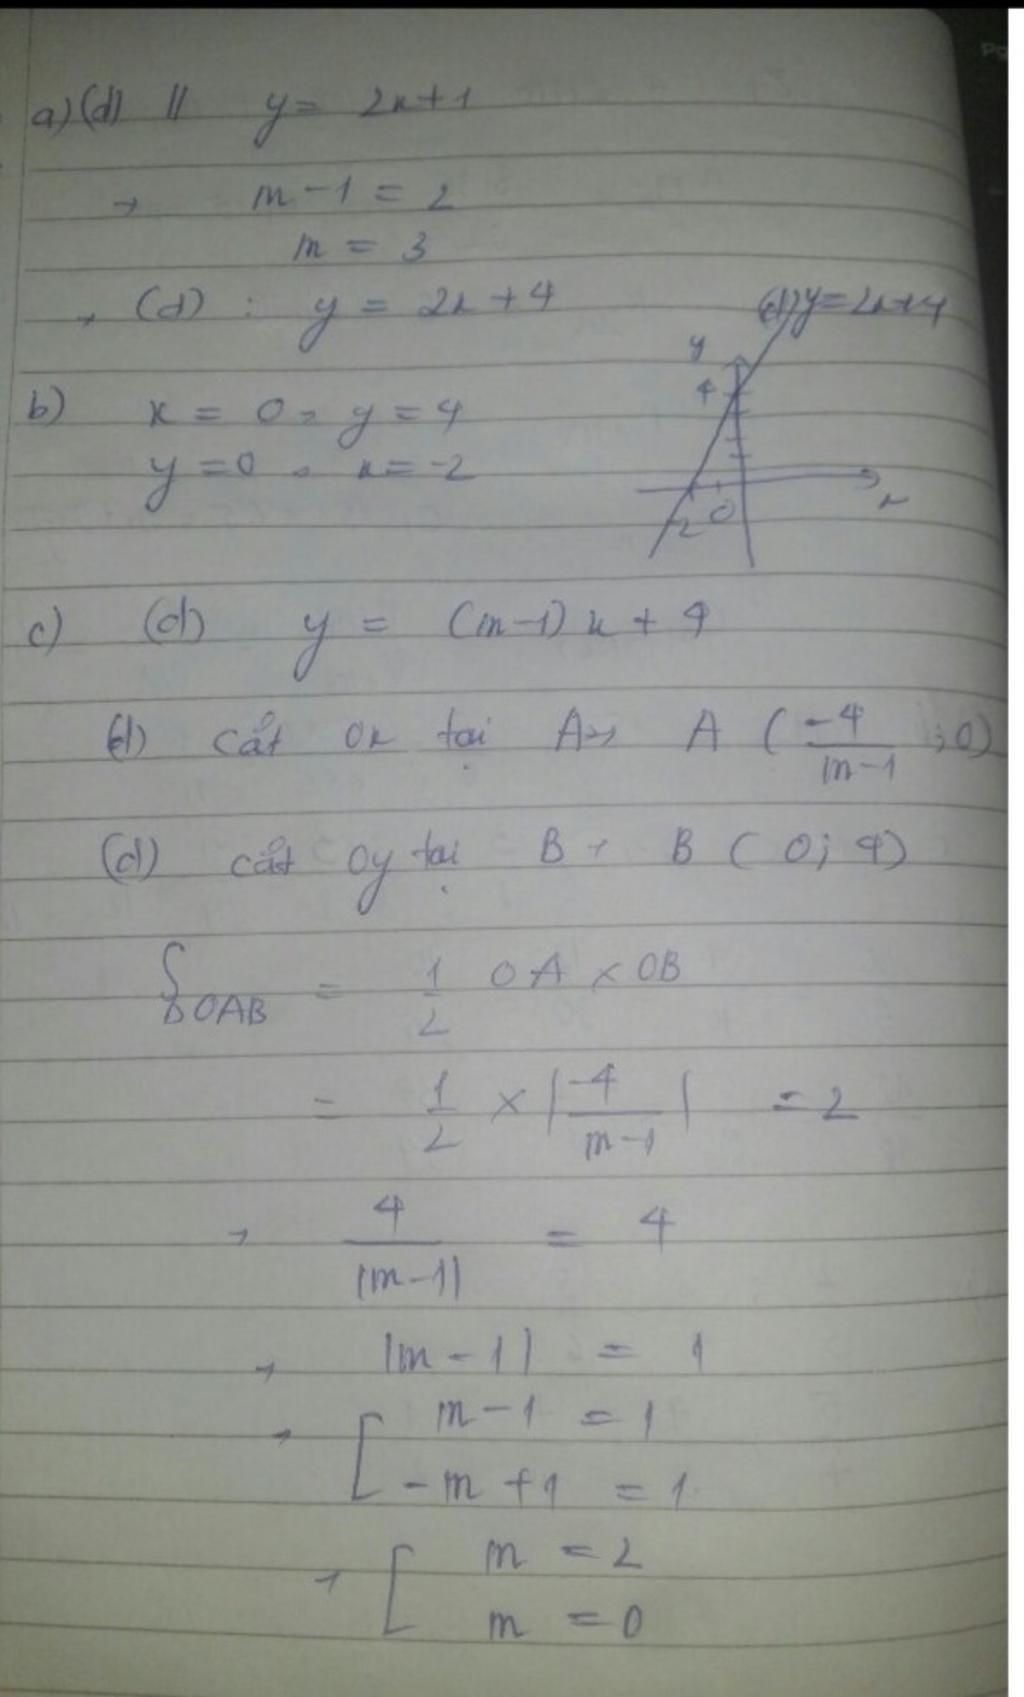 a) (d) // y = 2x + 1
→ m - 1 = 2
m = 3
→ (d) : y = 2x + 4
(d) y = 2x + 4
y
4
b) x = 0 → y = 4
y = 0 → x = -2
-2 0 x
c) (d) y = (m-1) x + 4
(d) cắt Ox tại A → A ( -4/(m-1) ; 0)
(d) cắt Oy tại B → B ( 0; 4)
SΔOAB = 1/2 OA × OB
= 1/2 × | -4/(m-1) | = 2
→ 4/|m-1| = 4
→ |m - 1| = 1
→ [ m - 1 = 1
-m + 1 = 1
→ [ m = 2
m = 0